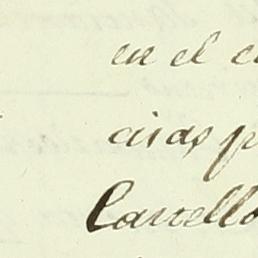 en el c
cisas p
Castello